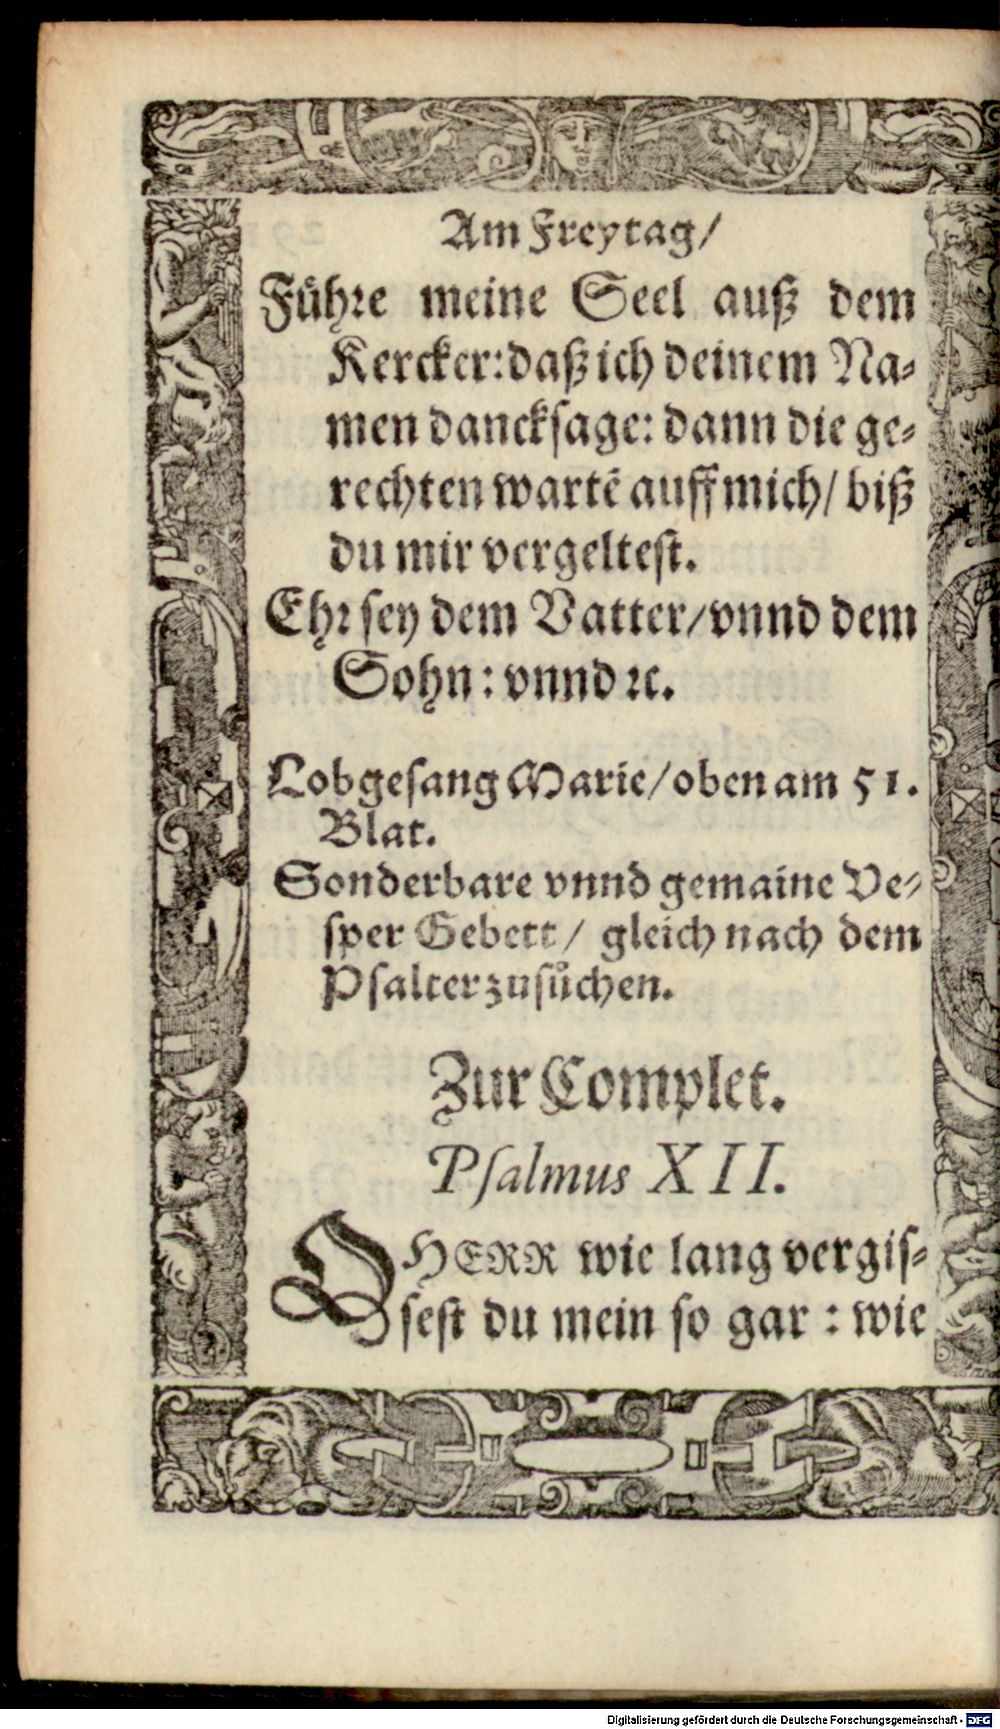 Am Freytag/
Führe meine Seel auß dem
Kercker: daß ich deinem Na⸗
men danckſage: dann die ge⸗
rechten wartē auff mich/ biß
du mir vergelteſt.
Ehr ſey dem Vatter/ vnnd dem
Sohn: vnnd ꝛc.
Lobgeſang Marie/ oben am 51.
Blat.
Sonderbare vnnd gemaine Ve⸗
ſper Gebett/ gleich nach dem
Pſalter zuſůchen.
Zur Complet.
Pſalmus XII.
O HERR wie lang vergiſ⸗
ſeſt du mein ſo gar: wie
Digitalisierung gefördert durch die Deutsche Forschungsgemeinschaft - DFG